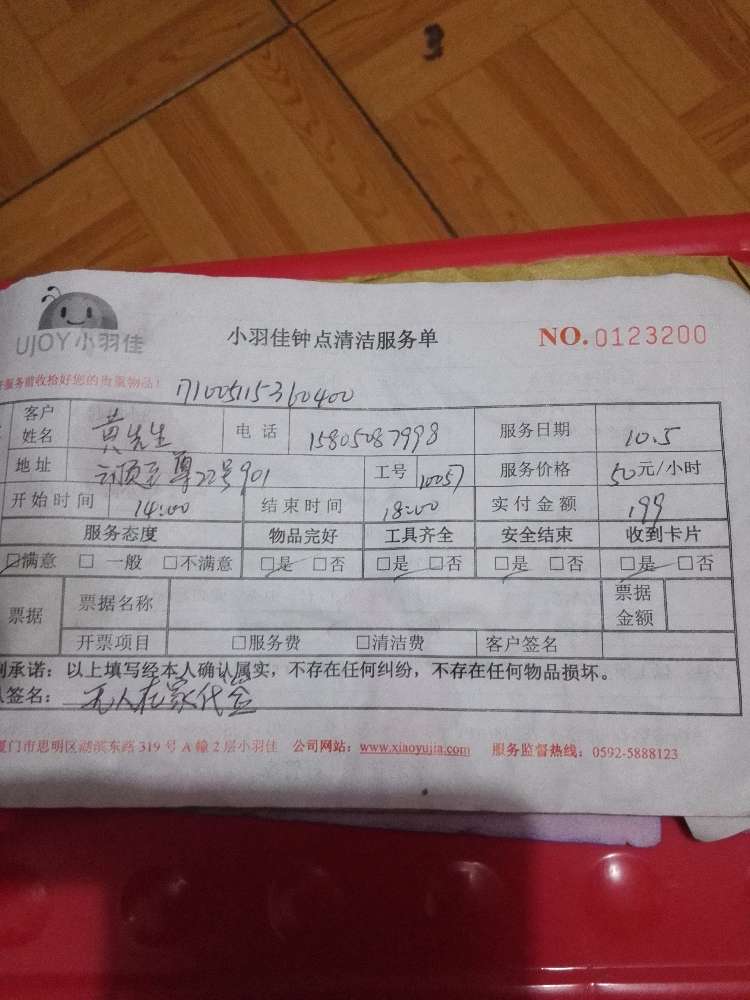 UJOY小羽佳
小羽佳钟点清洁服务单
NO.0123200
服务前收拾好您的贵重物品!
客户姓名 黄先生 电话 15805087998 服务日期 10.5
地址 至尊22号901 工号 10057 服务价格 50元/小时
开始时间 14:00 结束时间 18:00 实付金额 199
服务态度 物品完好 工具齐全 安全结束 收到卡片
□满意 □一般 □不满意 □是 □否 □是 □否 □是 □否 □是 □否
票据 票据名称 票据金额
开票项目 □服务费 □清洁费 客户签名
承诺：以上填写经本人确认属实，不存在任何纠纷，不存在任何物品损坏。
签名： 无人在家代签
厦门市思明区湖滨东路319号A幢2层小羽佳 公司网站：www.xiaoyujia.com 服务监督热线：0592-5888123